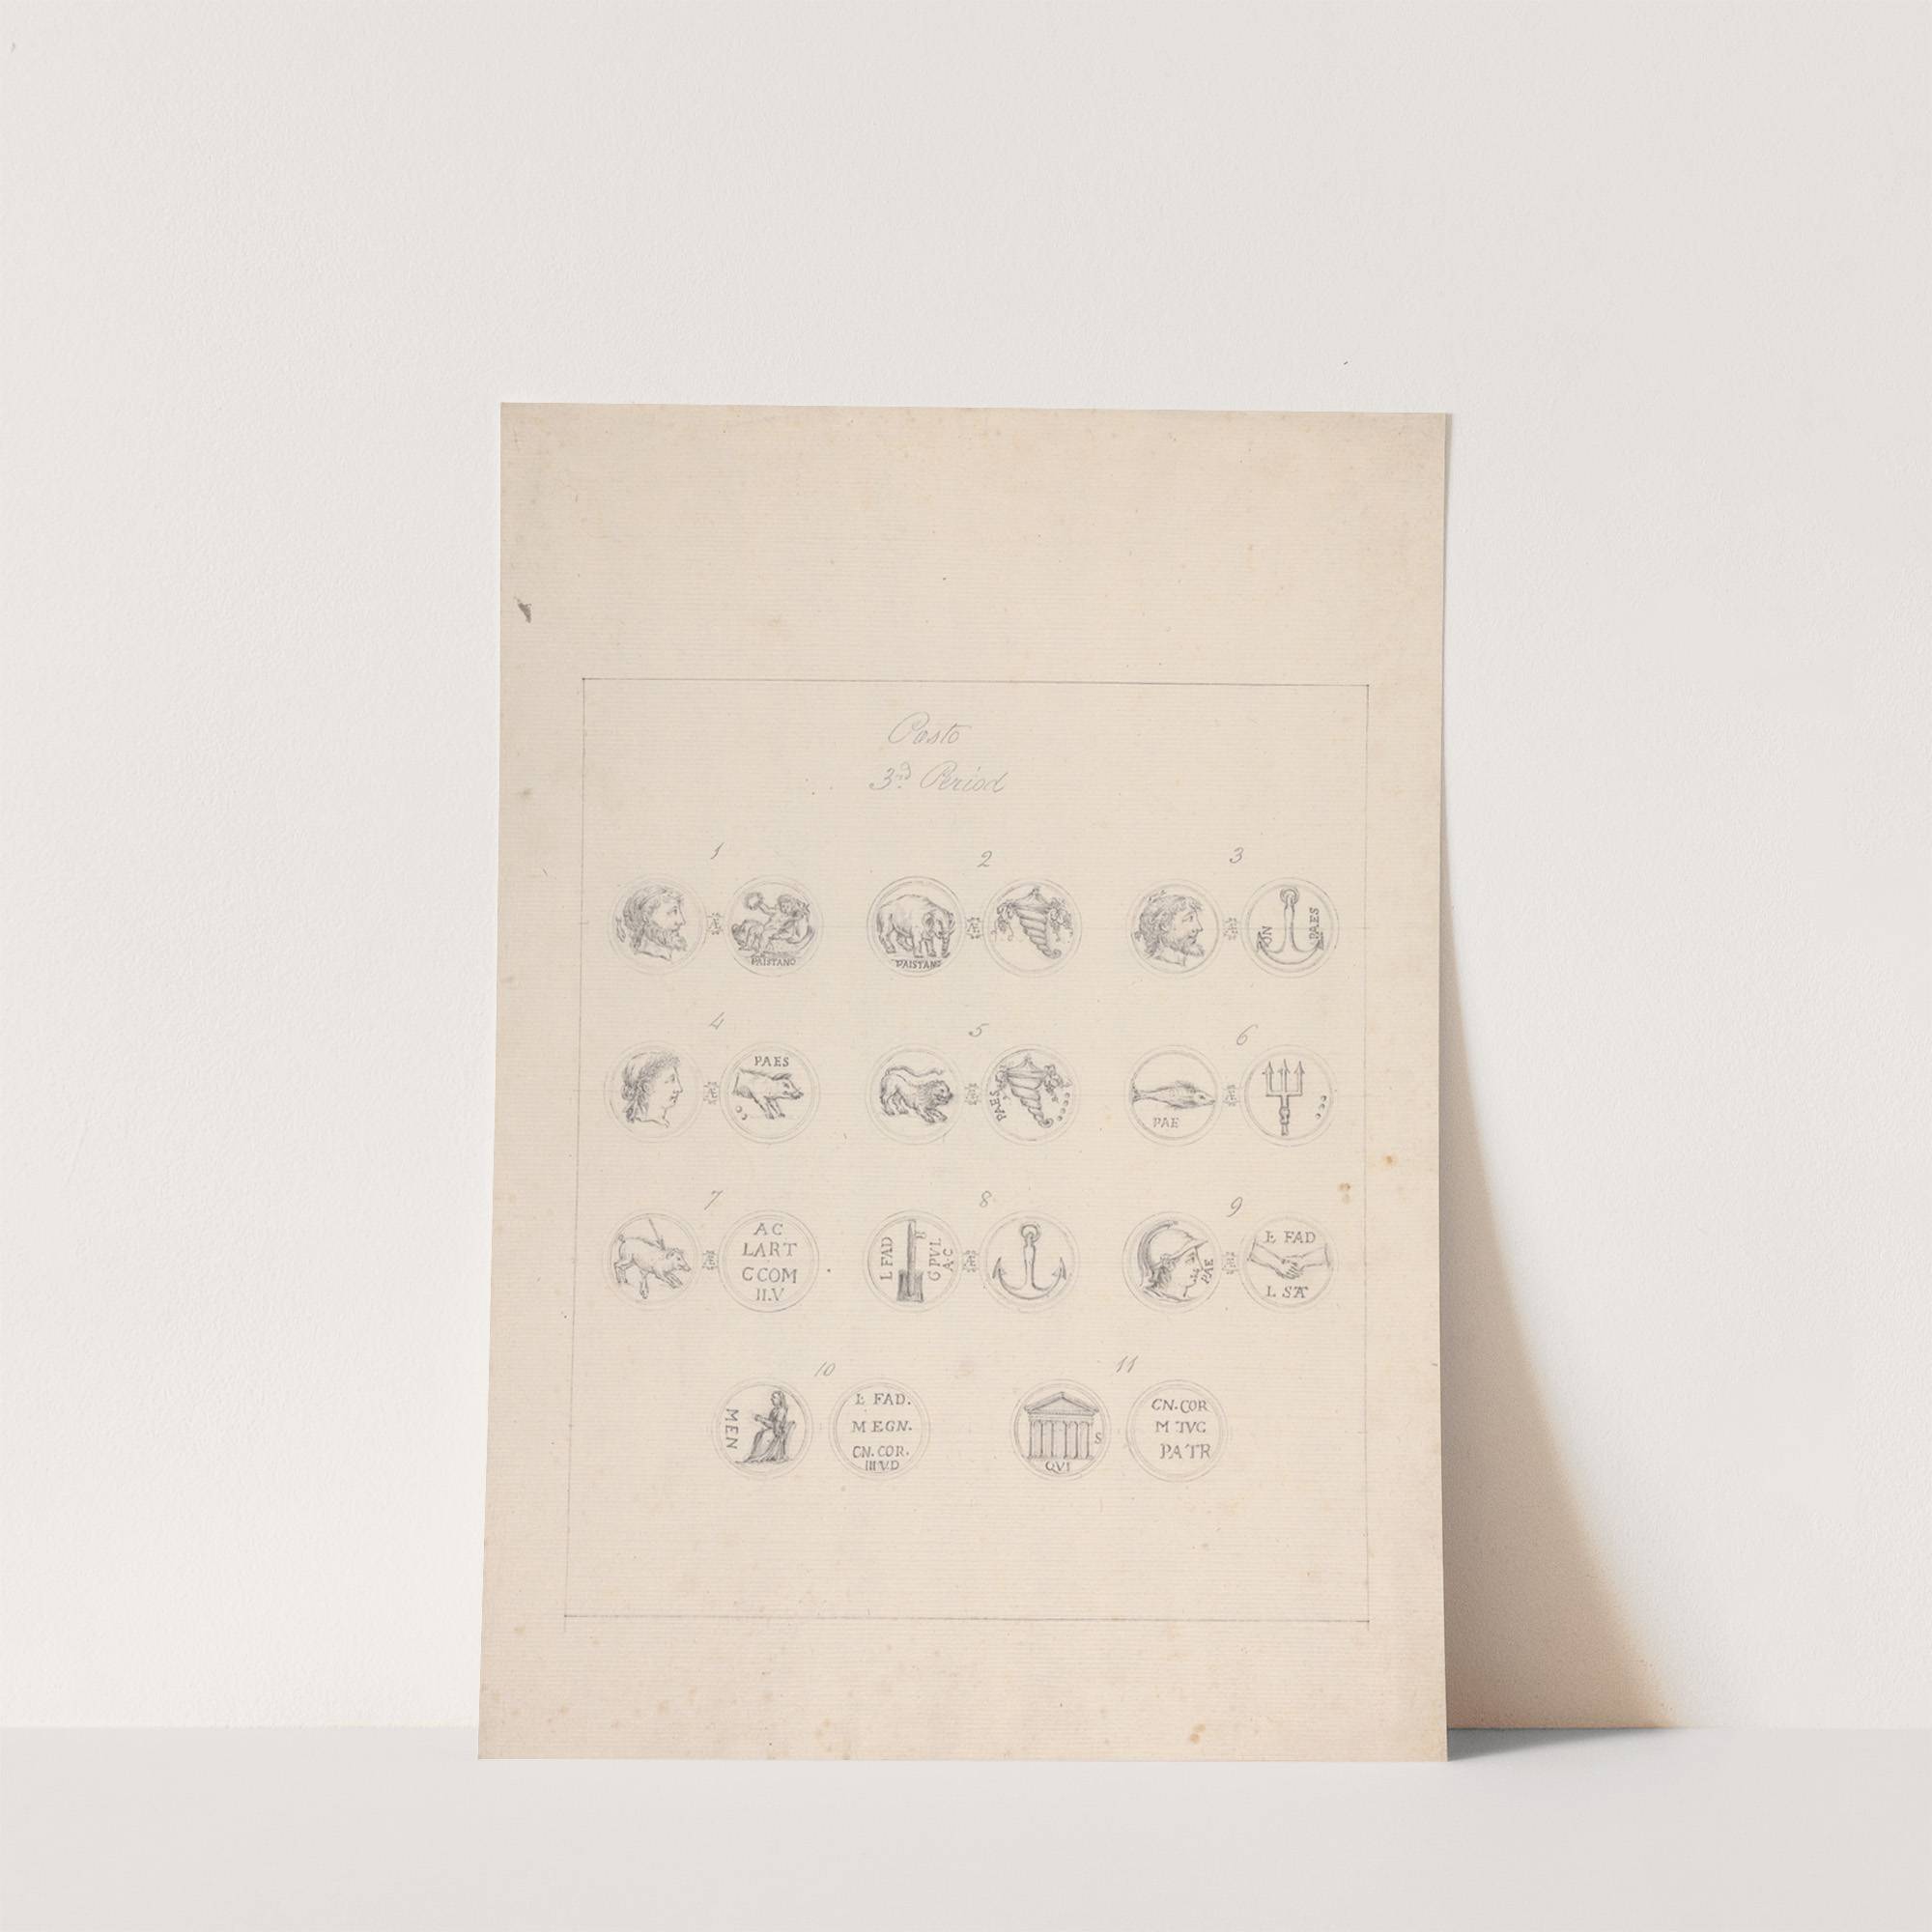 Pasto
3rd. Period
1
2
3
PAISTANO
PAISTANO
PAES
4
5
6
PAES
PAES
PAE
7
8
9
AC
LART
C COM
II.V
L FAD
C PVL
AC
PAE
L FAD
L SA
10
11
MEN
L FAD.
MEGN.
CN.COR.
IIII V.D
S
QVI
CN.COR
M TVC
PATR